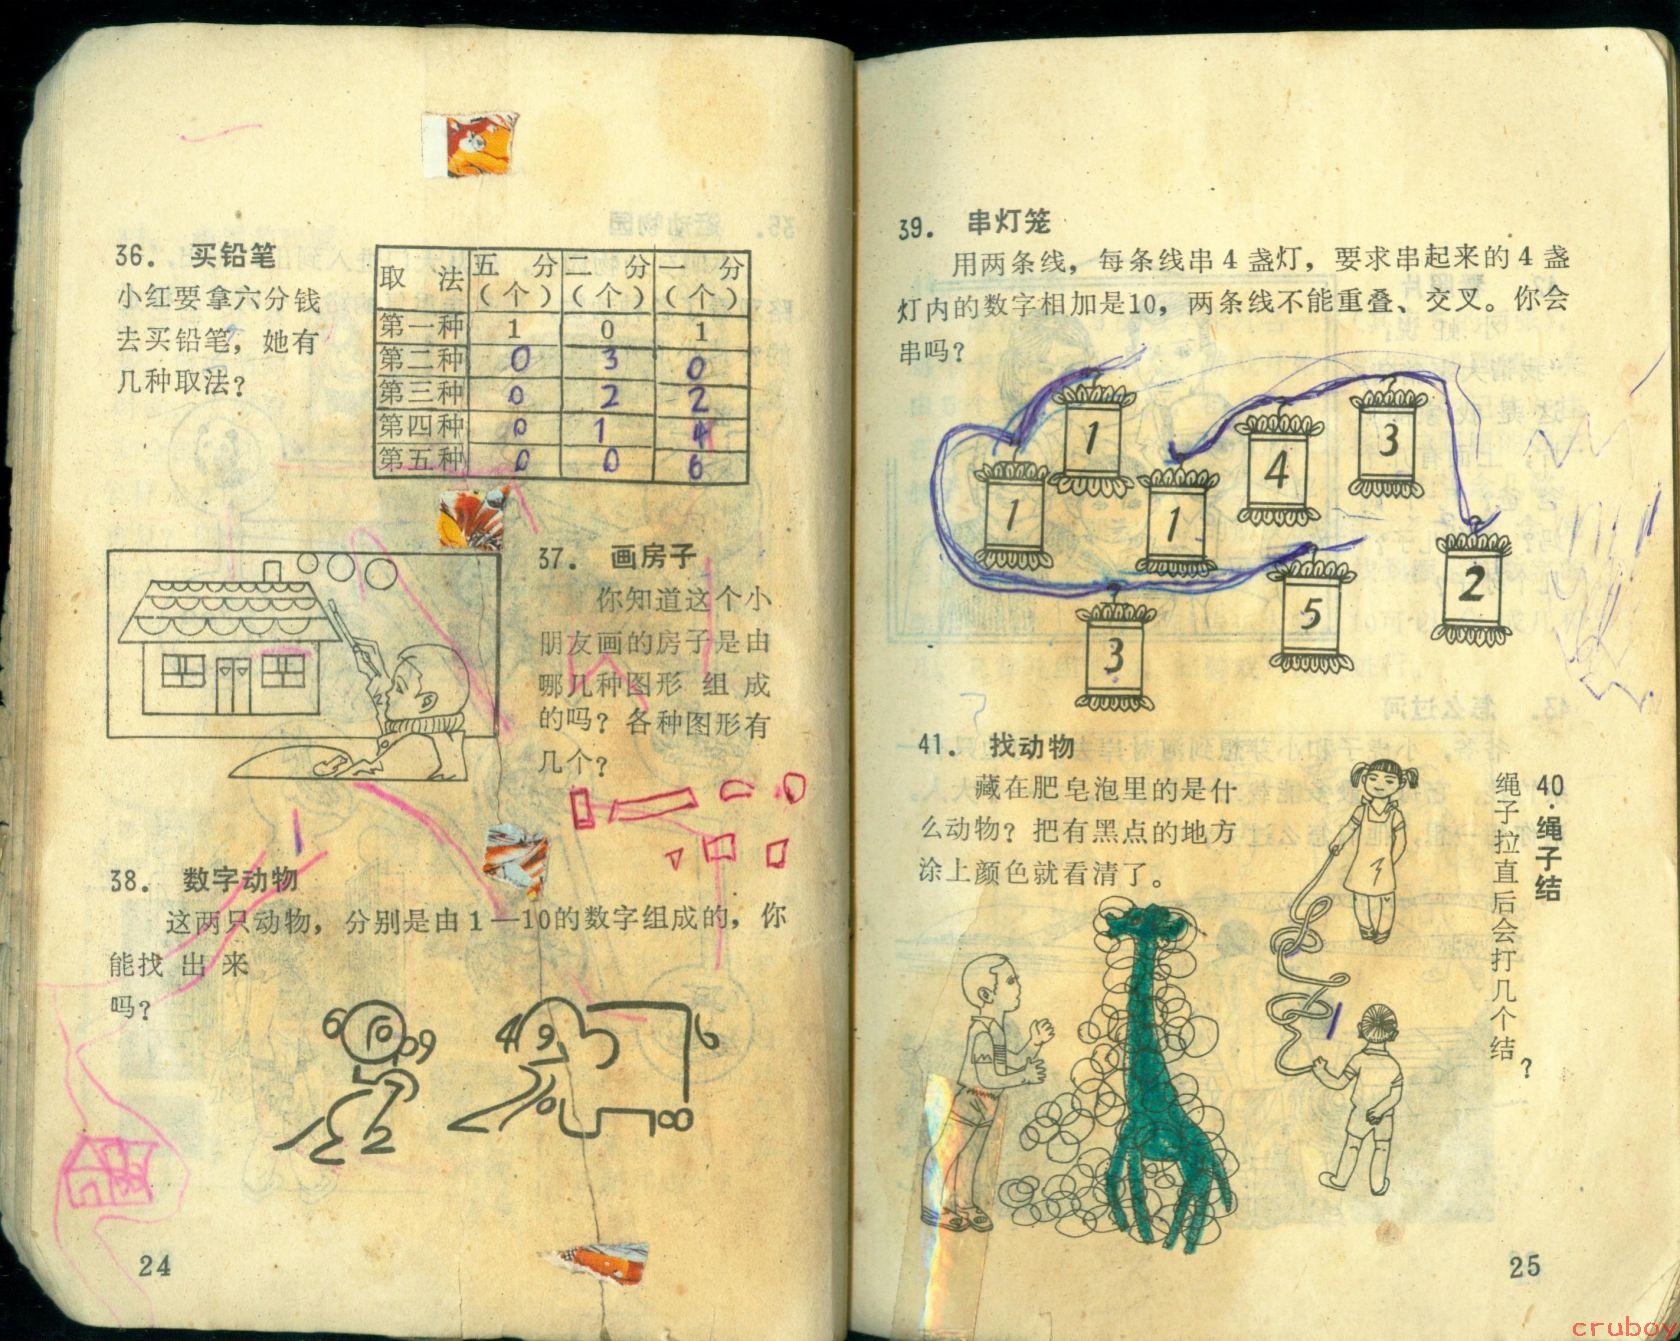 36. 买铅笔
小红要拿六分钱
去买铅笔，她有
几种取法？
取 法 五 分（个） 二 分（个） 一 分（个）
第一种 1 0 1
第二种 0 3 0
第三种 0 2 2
第四种 0 1 4
第五种 0 0 6
37. 画房子
你知道这个小
朋友画的房子是由
哪几种图形 组 成
的吗？各种图形有
几个？
38. 数字动物
这两只动物，分别是由1—10的数字组成的，你
能找 出 来
吗？
24
39. 串灯笼
用两条线，每条线串4盏灯，要求串起来的4盏
灯内的数字相加是10，两条线不能重叠、交叉。你会
串吗？
1
3
4
1
1
2
5
3
41. 找动物
藏在肥皂泡里的是什
么动物？把有黑点的地方
涂上颜色就看清了。
40. 绳子结
绳子拉直后会打几个结？
1
25
cruboy